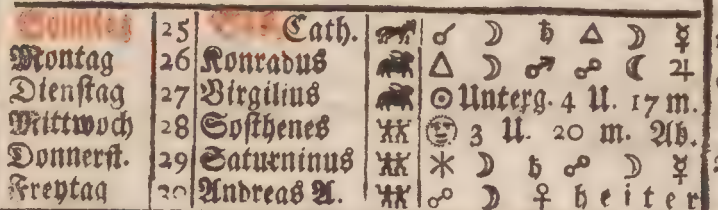 Sonntag 25 Cath. ☌ ☽ ♄ △ ☽ ☿
Montag 26 Konradus △ ☽ ♂ ☍ ☾ ♃
Dienſtag 27 Virgilius ☉ Unterg. 4 U. 17 m.
Mittwoch 28 Soſthenes 3 U. 20 m. Ab.
Donnerſt. 29 Saturninus ⚹ ☽ ♄ ☍ ☽ ☿
Freytag 30 Andreas A. ☍ ☽ ♀ heiter